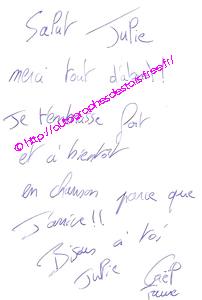 Salut Julie
merci tout d'abord!
Je t'embrasse fort
et à bientôt
en chanson parce que
J'arrive!!
Bisous à toi
Julie
© http://autographesdestars.free.fr/